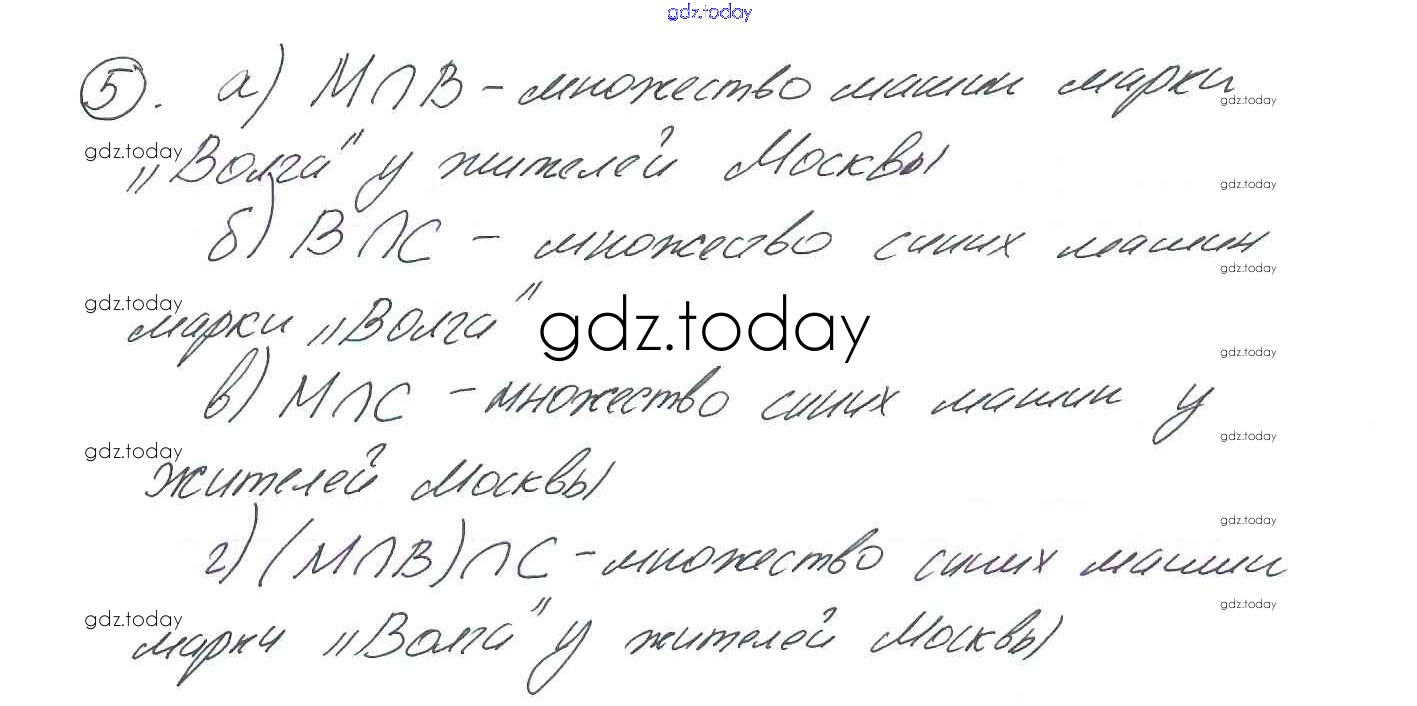 gdz.today
5. а) M∩B - множество машин марки
gdz.today
gdz.today
„Волга" у жителей Москвы
gdz.today
б) B∩C - множество синих машин
gdz.today
gdz.today
марки „Волга"
gdz.today
gdz.today
в) M∩C - множество синих машин у
gdz.today
gdz.today
жителей Москвы
gdz.today
г) (M∩B)∩C - множество синих машин
gdz.today
gdz.today
марки „Волга" у жителей Москвы